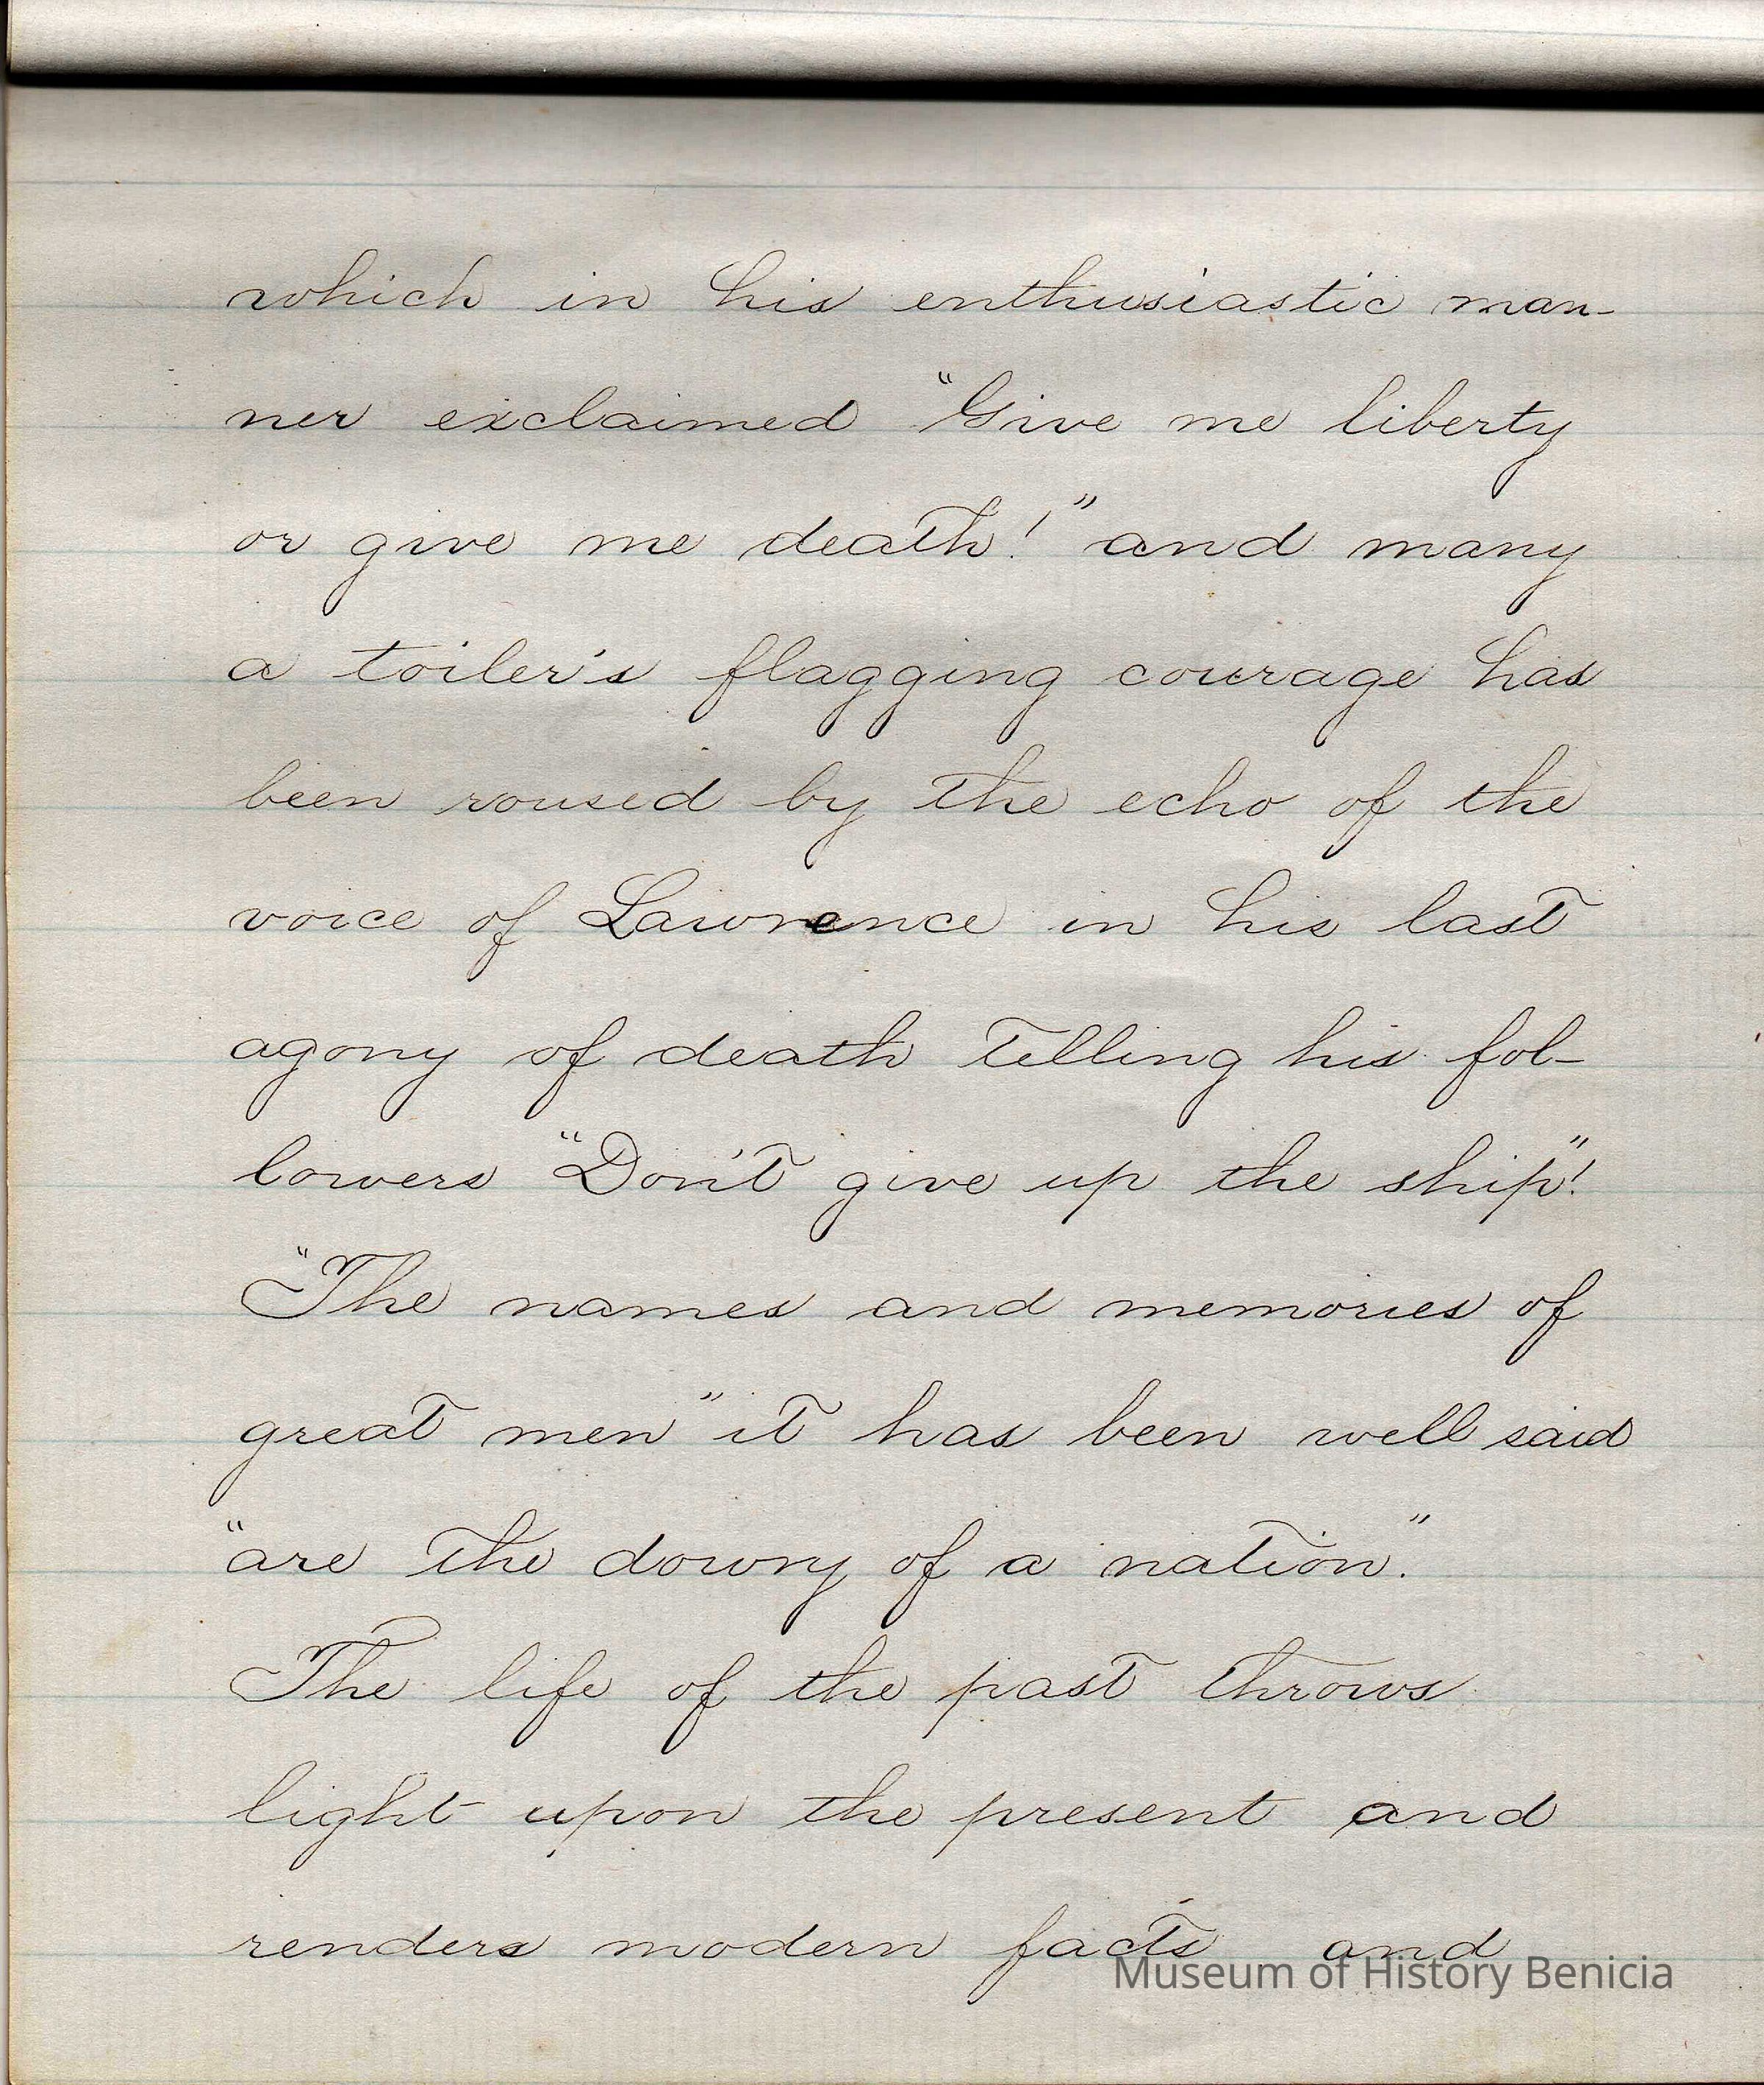 which in his enthusiastic man-
ner exclaimed "Give me liberty
or give me death!" and many
a toiler's flagging courage has
been roused by the echo of the
voice of Lawrence in his last
agony of death telling his fol-
lowers "Don't give up the ship"!
"The names and memories of
great men" it has been well said
"are the dowry of a nation."
The life of the past throws
light upon the present and
renders modern facts and
Museum of History Benicia